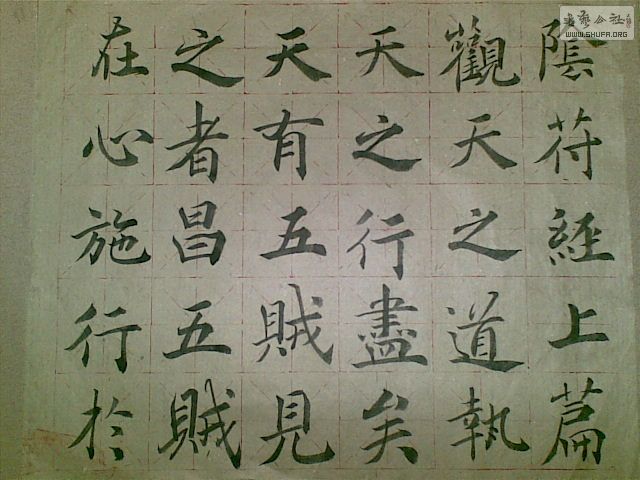 陰符經上篇
觀天之道執
天之行盡矣
天有五賊見
之者昌五賊
在心施行於
書藝公社
WWW.SHUFA.ORG